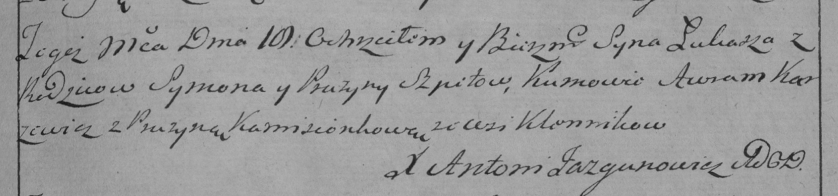 Tegoż Mca Dnia 10. Ochrzciłem y Bierzm: Syna Łukasza z
Rodzicow Symona y Pruzyny Szpitow, Kumowie Awram Kar
zewicz z Pruzyną Kamisionkową ze wsi Klonnikow
X Antoni Jazgunowicz